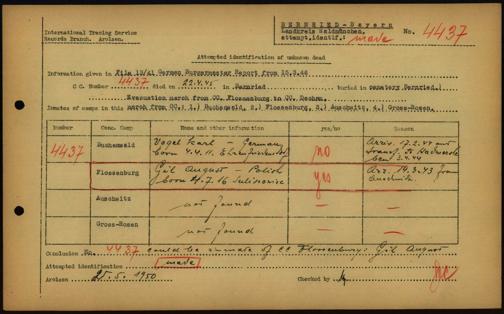 International Tracing Service
Records Branch. Arolsen.
BERNRIED-Bayern
Landkreis Waldmünchen.
attempt.identif.: made
No. 4437
Attempted identification of unknown dead
Information given in File 12/41 German Burgermeister Report from 10.3.46
CC Number 4437 died on 22.4.45 in Bernried buried in cemetery Bernried.
Evacuation march from CC. Flossenburg to CC. Dachau.
Inmates of camps in this march from CC. 1.) Buchenwald, 2.) Flossenburg, 3.) Auschwitz, 4.) Gross-Rosen.
Number Conc. Camp Name and other information yes/no Reason
4437 Buchenwald Vogel Karl - German no Arriv. 17.2.44 and
born 4.4.11 transf. to
3.4.44
Flossenburg Gil August - Polish yes Arr. 14.3.43 from
born 21.7.16 Auschwitz.
Auschwitz not found — —
Gross-Rosen not found — —
Conclusion No. 4437 could be inmate of CC Flossenburg: Gil August
Attempted identification made
Arolsen 25.5.1950 Checked by